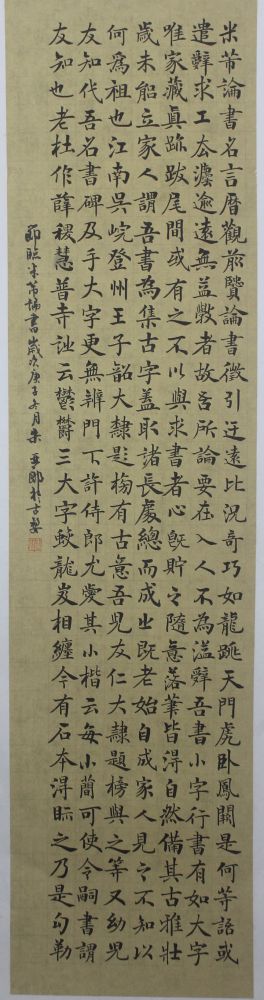 米芾論書名言曆觀前賢論書徵引迂遠比況奇巧如龍跳天門虎卧鳳闕是何等語或
遣辭求工去灋逾遠無益斆者故吾所論要在入人不為溢辭吾書小字行書有如大字
唯家藏真跡跋尾間或有之不以與求書者心既貯之隨意落筆皆得自然備其古雅壯
歲未能立家人謂吾書為集古字蓋取諸長處總而成之既老始自成家人見之不知以
何為祖也江南吳皖登州王子韶大隸題榜有古意吾兒友仁大隸題榜與之等又幼兒
友知代吾名書碑及手大字更無辨門下許侍郎尤愛其小楷云每小簡可使令嗣書謂
友知也老杜作薛稷慧普寺詩云鬱鬱三大字蛟龍岌相纏今有石本得眎之乃是勾勒
節臨米芾論書歲次庚子冬月朱